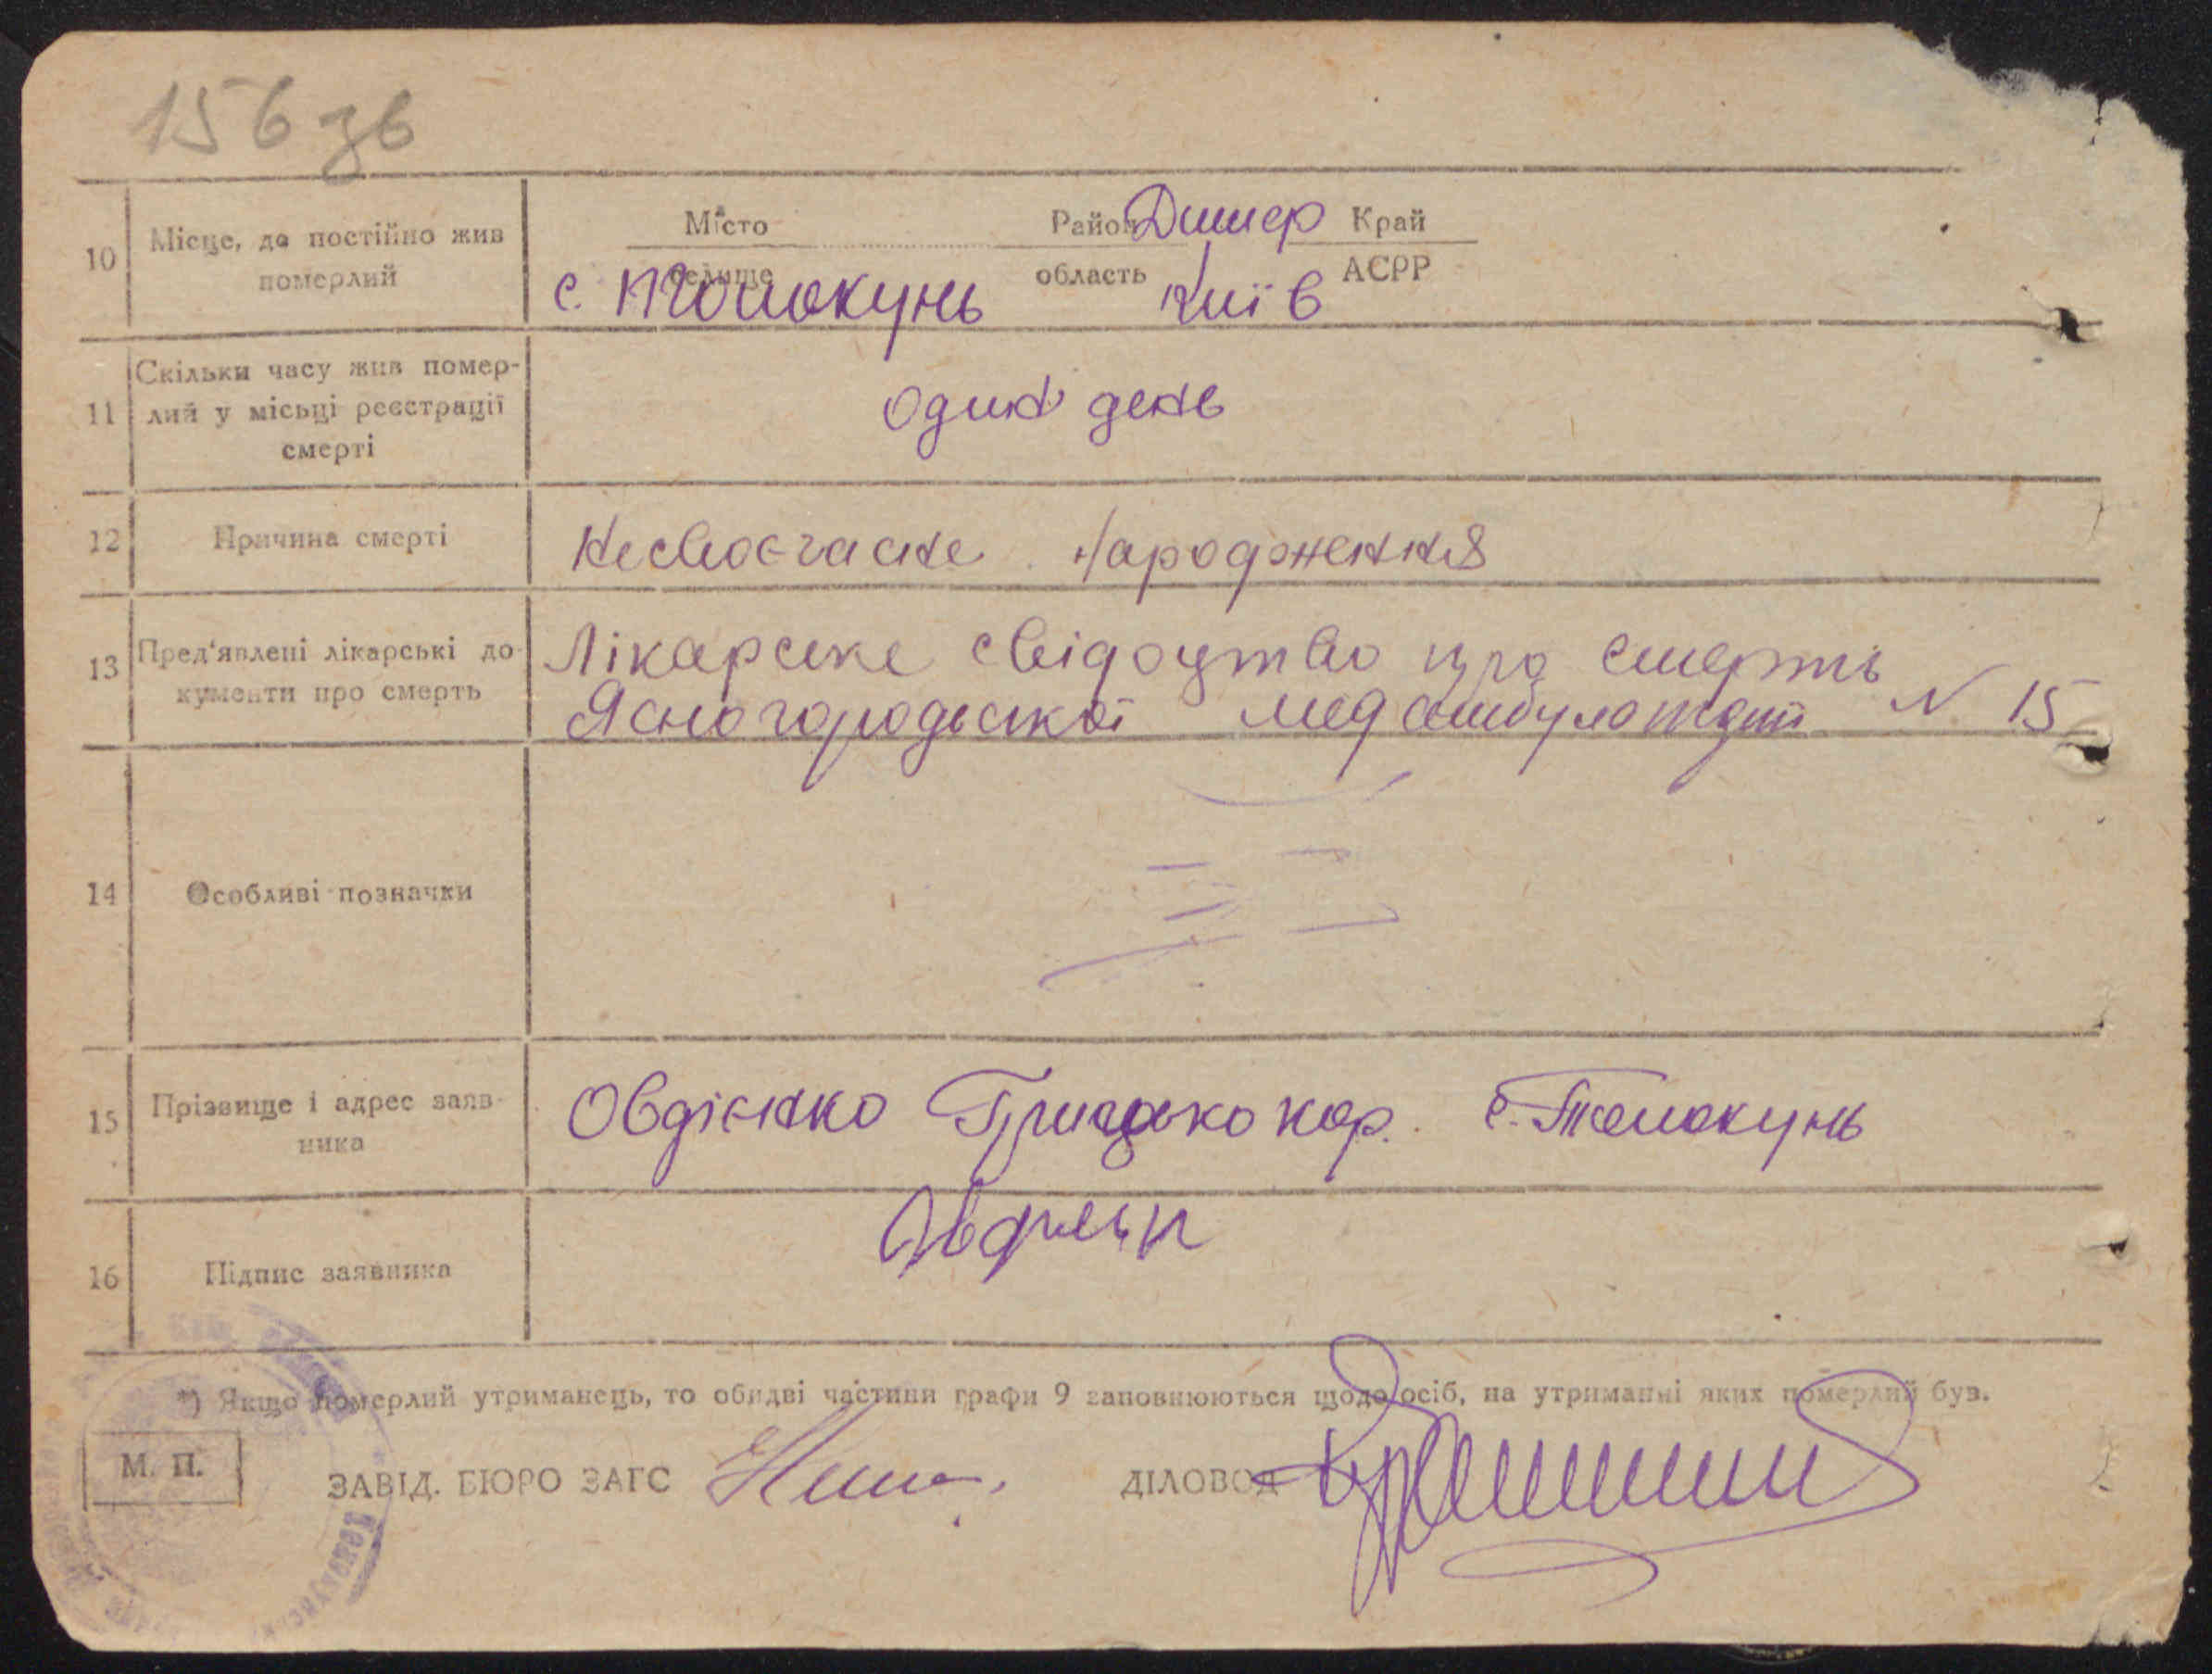 156 зв
10 Місце, де постійно жив померлий
Місто Район Димер Край
селище область АСРР
с. Толокунь Київ
11 Скільки часу жив помер-
лий у місьці реєстрації
смерті
один день
12 Причина смерті
Несвоєчасне народження
13 Пред'явлені лікарські до-
кументи про смерть
Лікарське свідоцтво про смерть
Ясногородської медамбулоторії N 15
14 Особливі позначки
15 Прізвище і адрес заяв-
ника
Овдієнко Грицько кор. с. Толокунь
16 Підпис заявника
*) Якщо померлий утриманець, то обидві частини графи 9 заповнюються щодо осіб, на утриманні яких померлий був.
М. П.
ЗАВІД. БЮРО ЗАГС
ДІЛОВОД